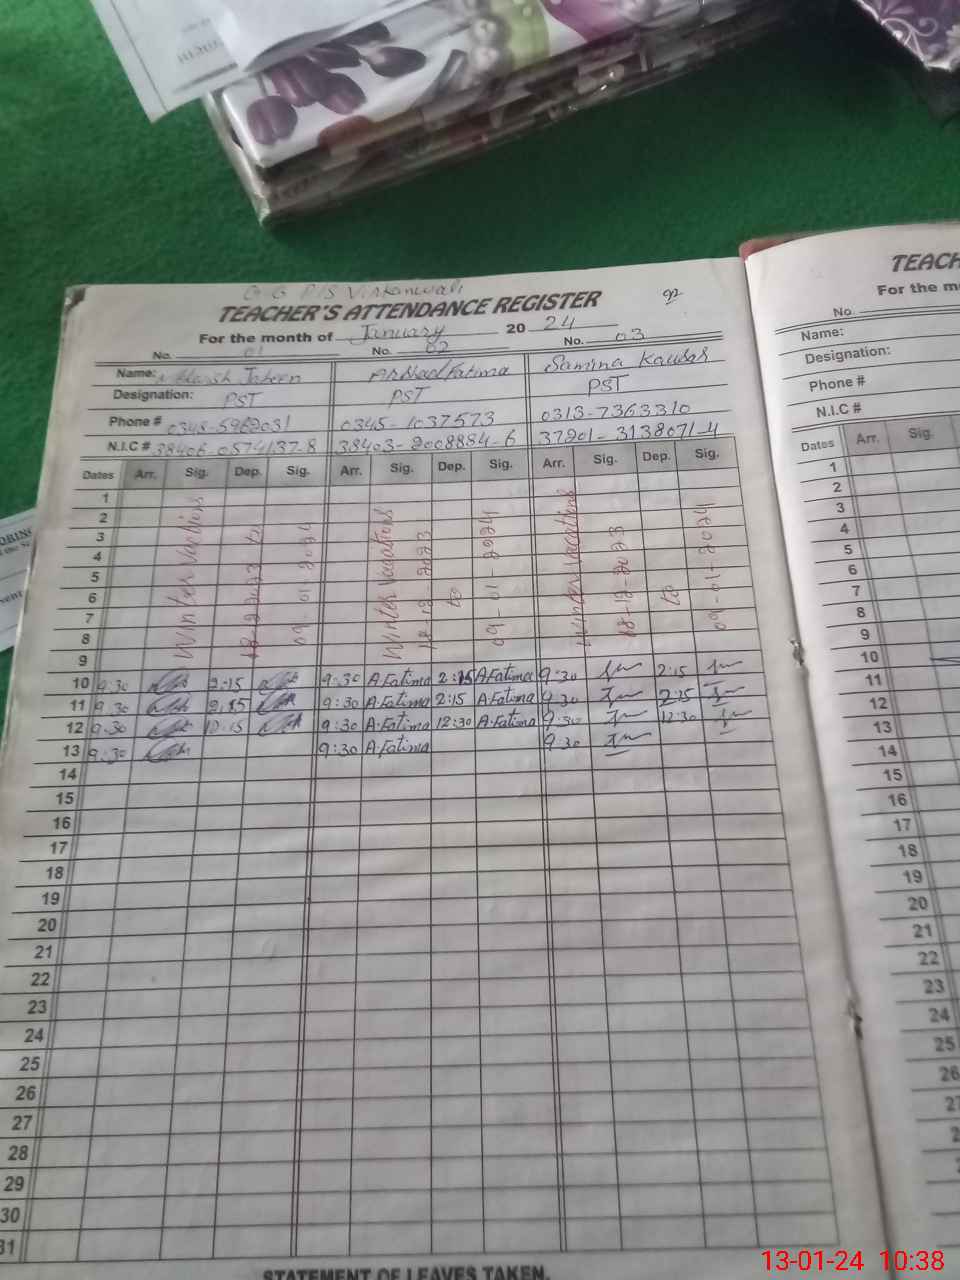 TEACHER'S ATTENDANCE REGISTER
For the month of January 20 24
No. 01 No. 02 No. 03
Name: Fatima Samina Kausar
Designation: PST PST PST
Phone # 0348-5962031 0345-1037573 0313-7363310
N.I.C # 38406-0574137-8 38403-2008884-6 37201-3138071-4
Dates Arr. Sig. Dep. Sig. Arr. Sig. Dep. Sig. Arr. Sig. Dep. Sig.
1
2
3
4
5
6
7
8
9
Winter 18-12-2023 to 09-01-2024
Winter Vacations 18-12-2023 to 09-01-2024
Winter Vacations 18-12-2023 to 09-01-2024
10 9:30 2:15 9:30 A.Fatima 2:15 A.Fatima 9:30 2:15
11 9:30 2:15 9:30 A.Fatima 2:15 A.Fatima 9:30 2:15
12 9:30 12:15 9:30 A.Fatima 12:30 A.Fatima 9:30 12:30
13 9:30 9:30 A.Fatima 9:30
14
15
16
17
18
19
20
21
22
23
24
25
26
27
28
29
30
31
STATEMENT OF LEAVES TAKEN.
TEACH
For the m
No.
Name:
Designation:
Phone #
N.I.C #
Dates Arr. Sig.
1
2
3
4
5
6
7
8
9
10
11
12
13
14
15
16
17
18
19
20
21
22
23
24
25
26
13-01-24 10:38